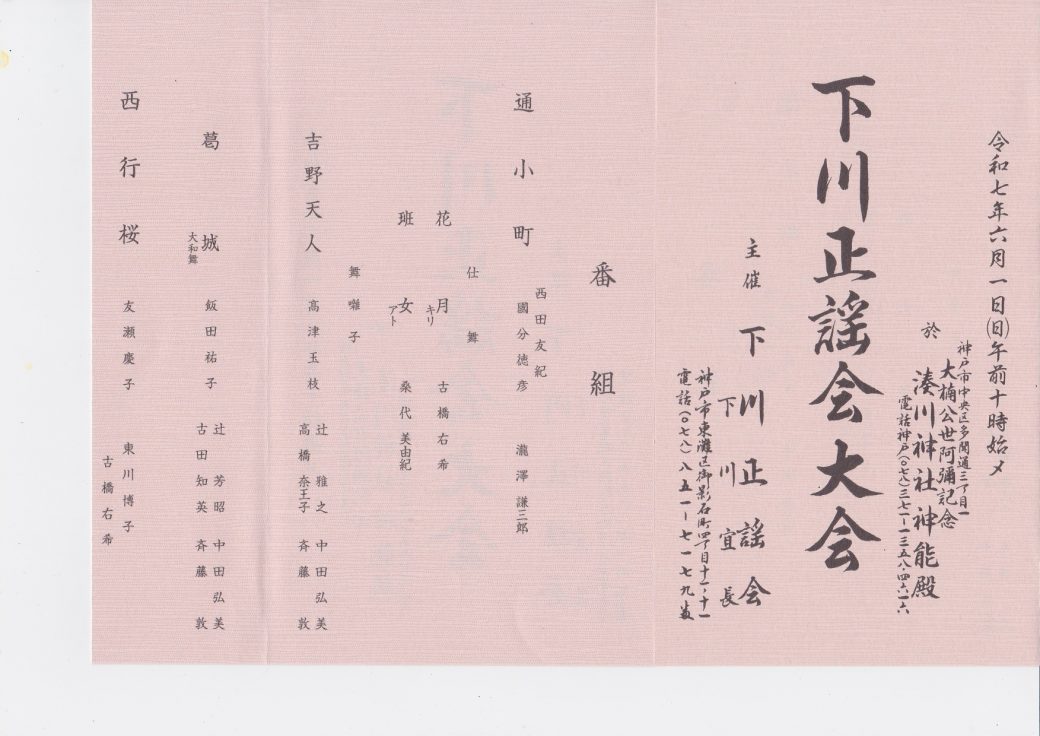 令和七年六月一日(日)午前十時始メ
神戸市中央区多聞通三丁目一
大楠公世阿彌記念
於 湊川神社神能殿
電話神戸(〇七八)三七一-一三五八・四六一六
下川正謡会大会
主催 下川正謡会
下川宜長
神戸市東灘区御影石町四丁目十一・十一
電話(〇七八)八五一-七一七九番
番組
西田友紀
通小町 國分徳彦 瀧澤謙三郎
仕舞
花月 キリ 古橋右希
班女 アト 桑代美由紀
舞囃子
吉野天人 高津玉枝 辻雅之 中田弘美
高橋奈王子 斉藤敦
葛城 大和舞 飯田祐子 辻芳昭 中田弘美
古田知英 斉藤敦
西行桜 友瀬慶子 東川博子
古橋右希